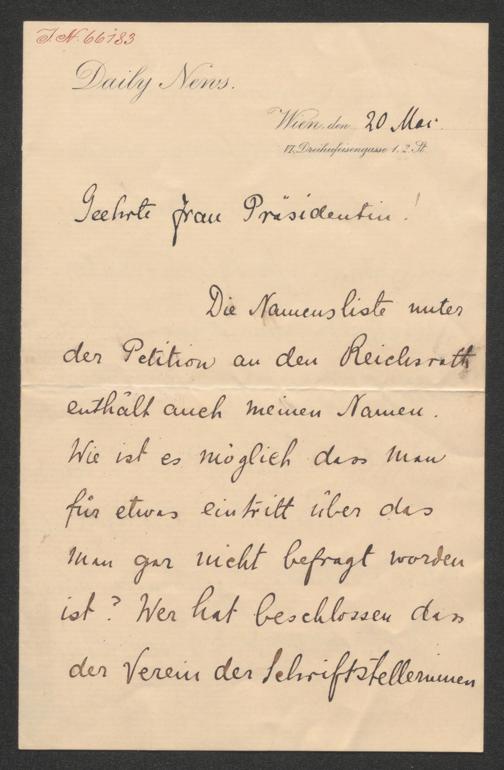 J.N. 66183
Daily News.
Wien, den 20 Mai
VI. Dreihufeisengasse 1. 2. St.
Geehrte Frau Präsidentin!
Die Namensliste unter
der Petition an den Reichsrath
enthält auch meinen Namen.
Wie ist es möglich dass man
für etwas eintritt über das
man gar nicht befragt worden
ist? Wer hat beschlossen dass
der Verein der Schriftstellerinnen